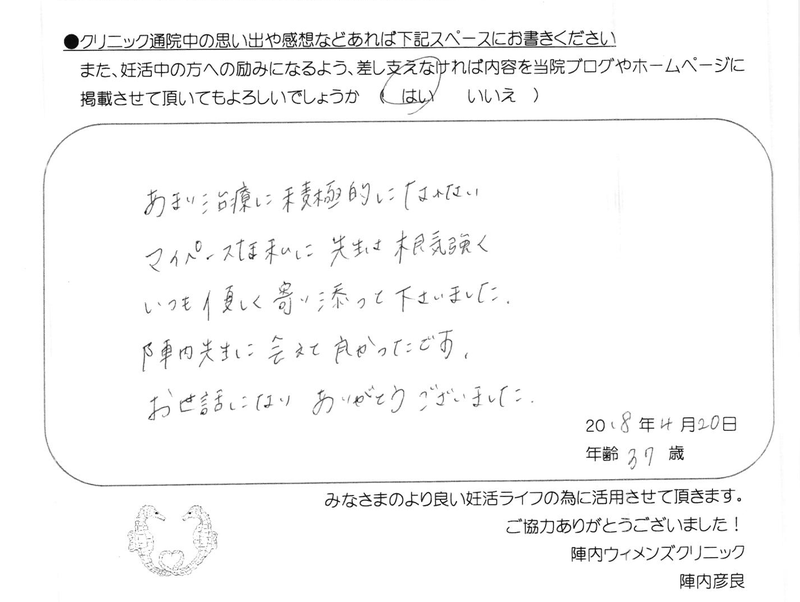 ●クリニック通院中の思い出や感想などあれば下記スペースにお書きください
また、妊活中の方への励みになるよう、差し支えなければ内容を当院ブログやホームページに
掲載させて頂いてもよろしいでしょうか （ はい　いいえ ）
あまり治療に積極的になれない
マイペースな私に 先生は 根気強く
いつも優しく 寄り添って下さいました.
陣内先生に 会えて 良かったです.
お世話になり ありがとうございました.
2018年4月20日
年齢 37 歳
みなさまのより良い妊活ライフの為に活用させて頂きます。
ご協力ありがとうございました！
陣内ウィメンズクリニック
陣内彦良